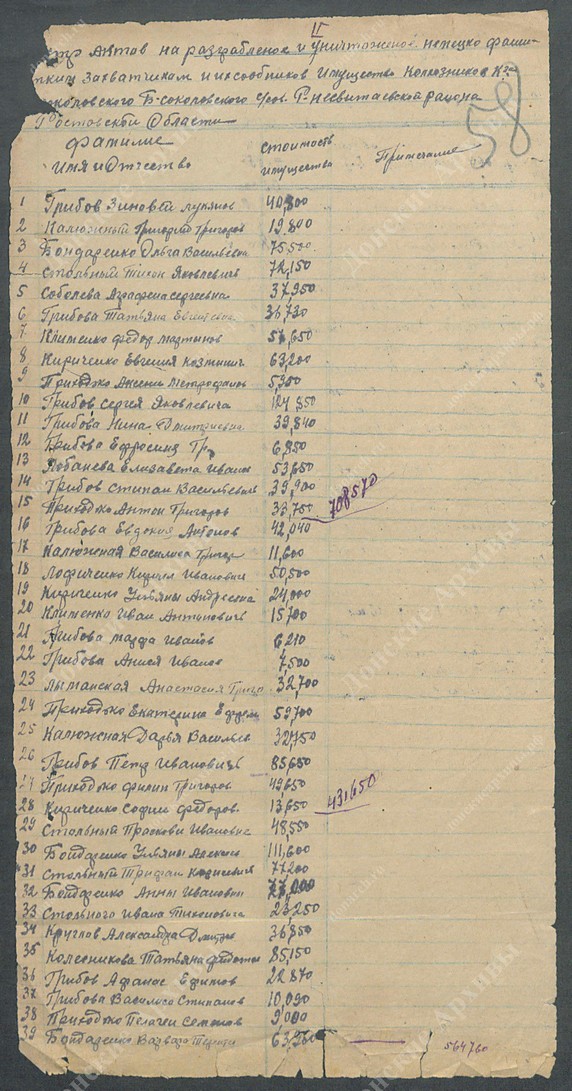 II
58
стр Актов на разграбленое и уничтоженое немецко фаши-
захватчикам и их сообников имущество колхозников К-за
Б-соколовского Р-Несвитаевской района
Ростовской Области
фамилие
имя и Отчество
стоимость
имущества
Примечание
1 Грибов Зиновей лукянов 40,800
2 Калюжный Григорий Григоров 19,800
3 Бондаренко Ольга Васильевна 75,500
4 Стольный Тихон Яковлевич 72,150
5 Соболева Аграфена сергеевна 37,950
6 Грибова Татьяна 36,730
7 Клименко федор мартинов 56,650
8 Кириченко Евгения 63,200
9 Приходько Аксенья Метрофанов 5,900
10 Грибов сергея Яковлевича 124,350
11 Грибова Нина Дмитриевна 39,840
12 Грибова Ефросинья Гр 6,850
13 Лобанева Елизавета иванов 53,650
14 Грибов степан Васильевич 39,900
15 Приходько Антон Григоров 33,750 708570
16 Грибова Евдокия Антонов 42,040
17 Калюжная Василиса Григор 11,600
18 Кирил Иванович 50,500
19 Кириченко Ульяны Андреевна 24,000
20 Клименко Иван Антонович 15,700
21 Грибова марфа иванов 6,210
22 Грибова Анися Иванов 7,500
23 Лытанская Анастасия Григо 32,700
24 Приходько Екатерина Ефрем 59,700
25 Калюжная Дарья Васильев 32,750
26 Грибов Пётр Иванович 85,650
27 Приходько филип Григоров 49,650
28 Кириченко Софии федоров. 13,650 431,650
29 Стольный Прасковьи Ивановне 48,550
30 Бондаренко Ульяны Алексее 111,600
31 Стольный Трифан 77,200
32 Бондаренко Анны Ивановны 77,000
33 Стольного Ивана Тихоновича 23,250
34 Круглав Александра Дмитри 36,850
35 Колесникова Татьяна федотов 85,150
36 Грибов Афанас Ефимов 22,870
37 Грибова Василиса Стипанов 10,090
38 Приходько Пелагеи Семенов 9,000
39 Бондаренко Варвара 63,960 — 564760
Донские Архивы